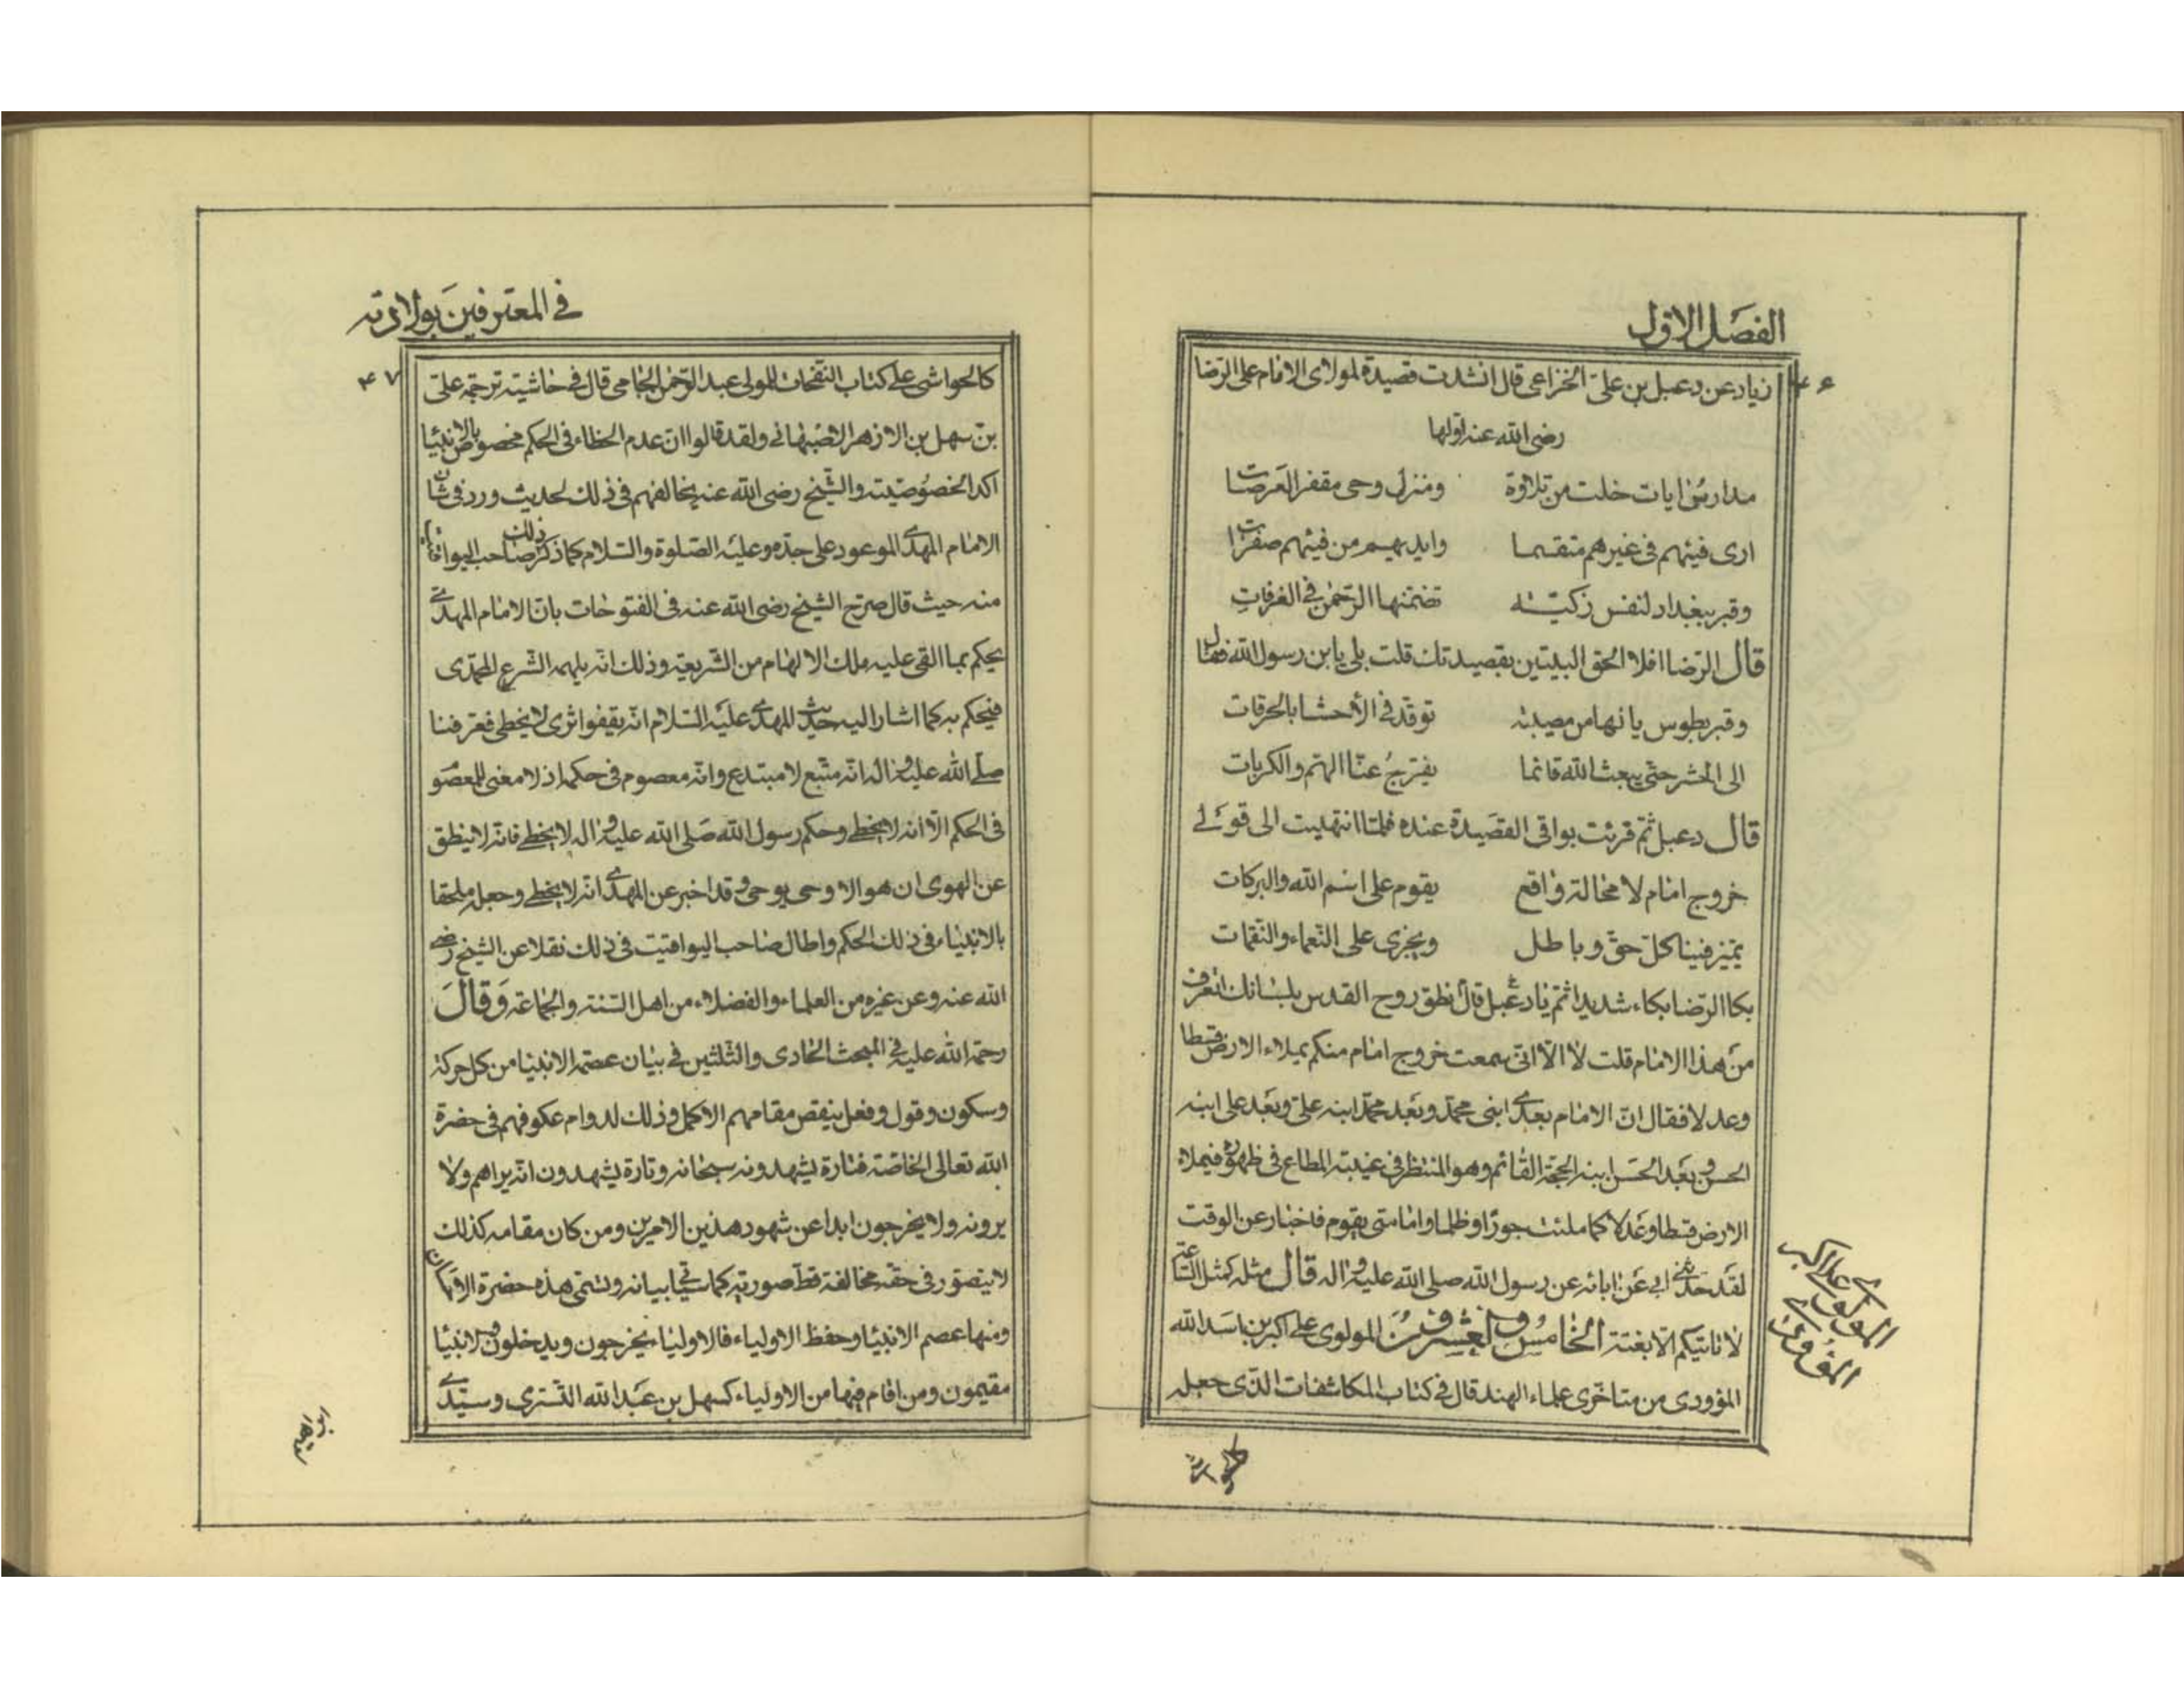 الفصل الاول
۴۶
زياد عن دعبل بن علىّ الخزاعى قال انشدت قصيدة لمولاى الامام على الرضا
رضى الله عنه اولها
مدارس ايات خلت من تلاوة ومنزل وحى مقفر العرصات
ارى فيئهم فى غيرهم متقسما وايديهم من فيئهم صفرات
وقبر ببغداد لنفس زكيّة تضمّنها الرّحمن في الغرفاتِ
قال الرّضا افلا الحق البيتين بقصيدتك قلت بلى يا بن رسول الله فقال
وقبر بطوس يا لها من مصيبة توقّد فى الأحشا بالحرقات
الى الحشر حتّى يبعث الله قائما يفرّجُ عنّا الهمّ والكربات
قال دعبل ثمّ قرئت بواقى القصيدة عنده فلمّا انتهيت الى قولى
خروج امام لا محالة واقع يقوم على اسم الله والبركات
يميّز فينا كلّ حقّ وباطل ويجزى على النّعماء والنقمات
بكا الرّضا بكاء شديدا ثم يا دعبل قال نطق روح القدس بلسانك اتعرف
من هذا الامام قلت لا الّا انّى سمعت خروج امام منكم يملاء الارض قسطا
وعدلا فقال انّ الامام بعدى ابنى محمّد وبعد محمّد ابنه علىّ وبعد على ابنه
الحسن وبعد الحسن ابنه الحجّة القائم وهو المنتظر فى غيبته المطاع فى ظهوره فيملاء
الارض قسطا وعدلا كما ملئت جورًا وظلما واما متى يقوم فاخبار عن الوقت
لقد حدّثنى ابى عن ابائه عن رسول الله صلى الله عليه واله قال مثله كمثل السّاعة
لا تاتيكم الّا بغتة الخامس والعشرون المولوى على اكبر بن اسد الله
المؤودى من متاخّرى علماء الهند قال فى كتاب المكاشفات الذى جعله
المولوى على اكبر
المؤودى
في المعترفين بولادته
۴۷
كالحواشى على كتاب النفحات للمولى عبد الرّحمن الجامى قال فى حاشية ترجمة علىّ
بن سهل بن الازهر الاصبهانى ولقد قالوا انّ عدم الخطاء فى الحكم مخصوص بالانبيا
اكد الخصوصيّة والشّيخ رضى الله عنه يخالفهم فى ذلك لحديث ورد فى شان
الامام المهدى الموعود على جدّه وعليه الصّلوة والسّلام كما ذكر ذلك صاحب اليواقيت
منه حيث قال صرّح الشيخ رضى الله عنه فى الفتوحات بانّ الامام المهدى
يحكم بما القى عليه ملك الالهام من الشّريعة وذلك انّه يلهمه الشّرع المحمّدى
فيحكم به كما اشار اليه حديث المهدى عليه السّلام انّه يقفوا اثرى لا يخطى فعرفنا
صلّى الله عليه واله انّه متّبع لا مبتدع وانّه معصوم فى حكمه اذ لا معنى للمعصو
فى الحكم الّا انه لا يخطى وحكم رسول الله صلى الله عليه واله لا يخطى فانّه لا ينطق
عن الهوى ان هو الا وحى يوحى وقد اخبر عن المهدى انّه لا يخطى وجعله ملحقا
بالانبياء فى ذلك الحكم واطال صاحب اليواقيت فى ذلك نقلا عن الشيخ رضى
الله عنه وعن غيره من العلماء والفضلاء من اهل السّنة والجماعة وقال
رحمة الله عليه فى المبحث الحادى والثّلثين فى بيان عصمة الانبيا من كل حركة
وسكون وقول وفعل ينقص مقامهم الاكمل وذلك لدوام عكوفهم فى حضرة
الله تعالى الخاصّة فتارة يشهدونه سبحانه وتارة يشهدون انّه يراهم ولا
يرونه ولا يخرجون ابدا عن شهود هذين الامرين ومن كان مقامه كذلك
لا يتصوّر فى حقّه مخالفة قطّ صوريّة كما سياتى بيانه وتسمّى هذه حضرة الاحسان
ومنها عصم الانبيا وحفظ الاولياء فالاولياء يخرجون ويدخلون والانبيا
مقيمون ومن اقام فيها من الاولياء كسهل بن عبد الله التّسترى وسيّدى
ابراهيم